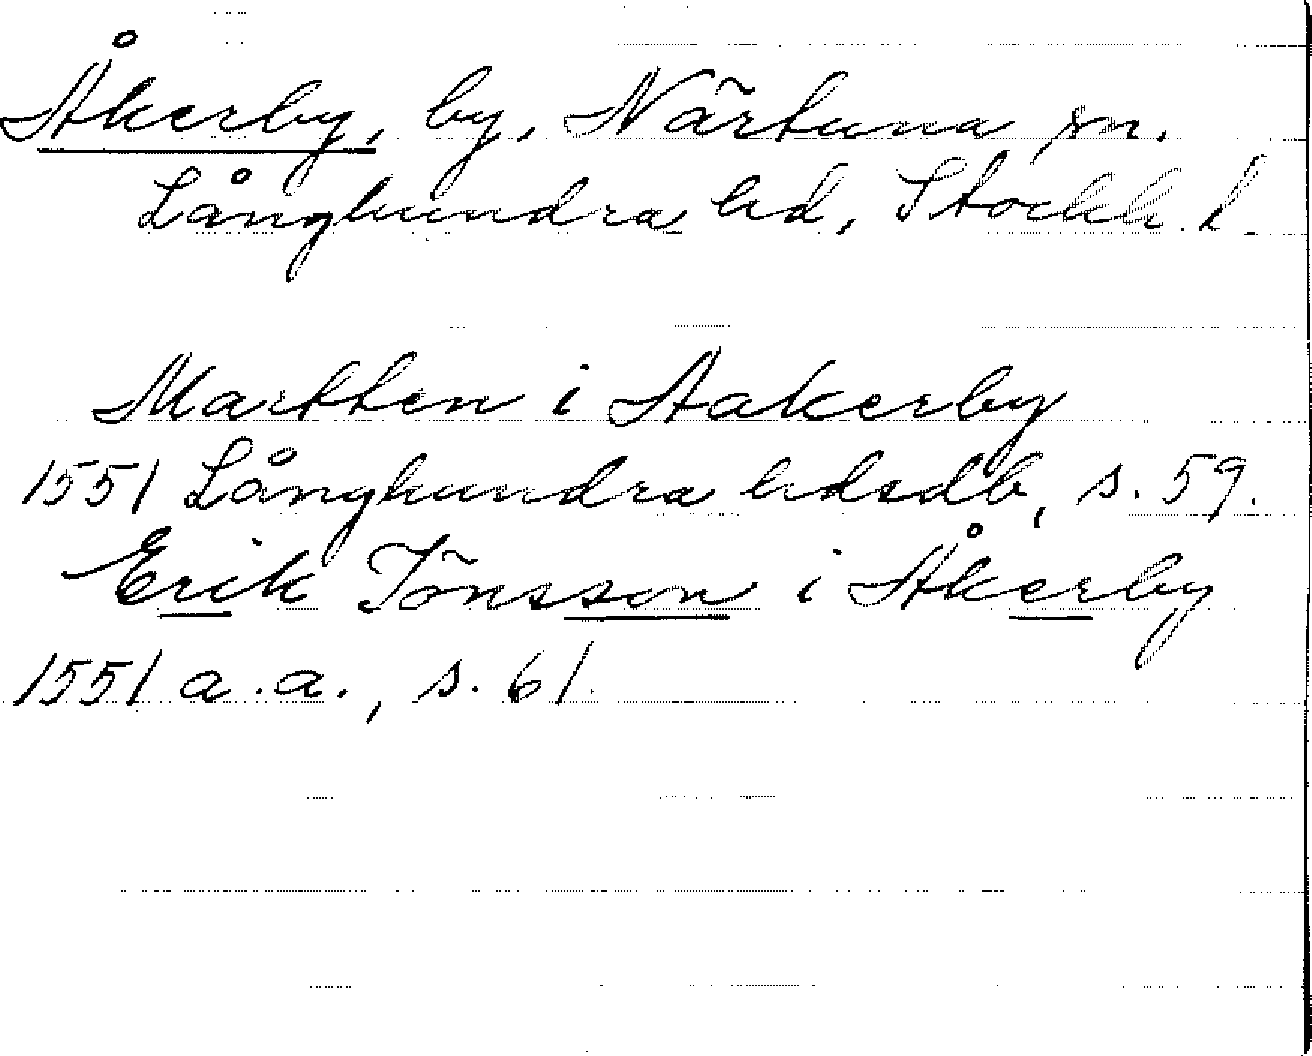 Åkerby, by, Närtuna sn.
Långhundra hd, Stockh. l.
Martten i Aakerby
1551 Långhundra hdsdb, s. 59.
Erik Jönsson i Åkerby
1551 a.a., s. 61.